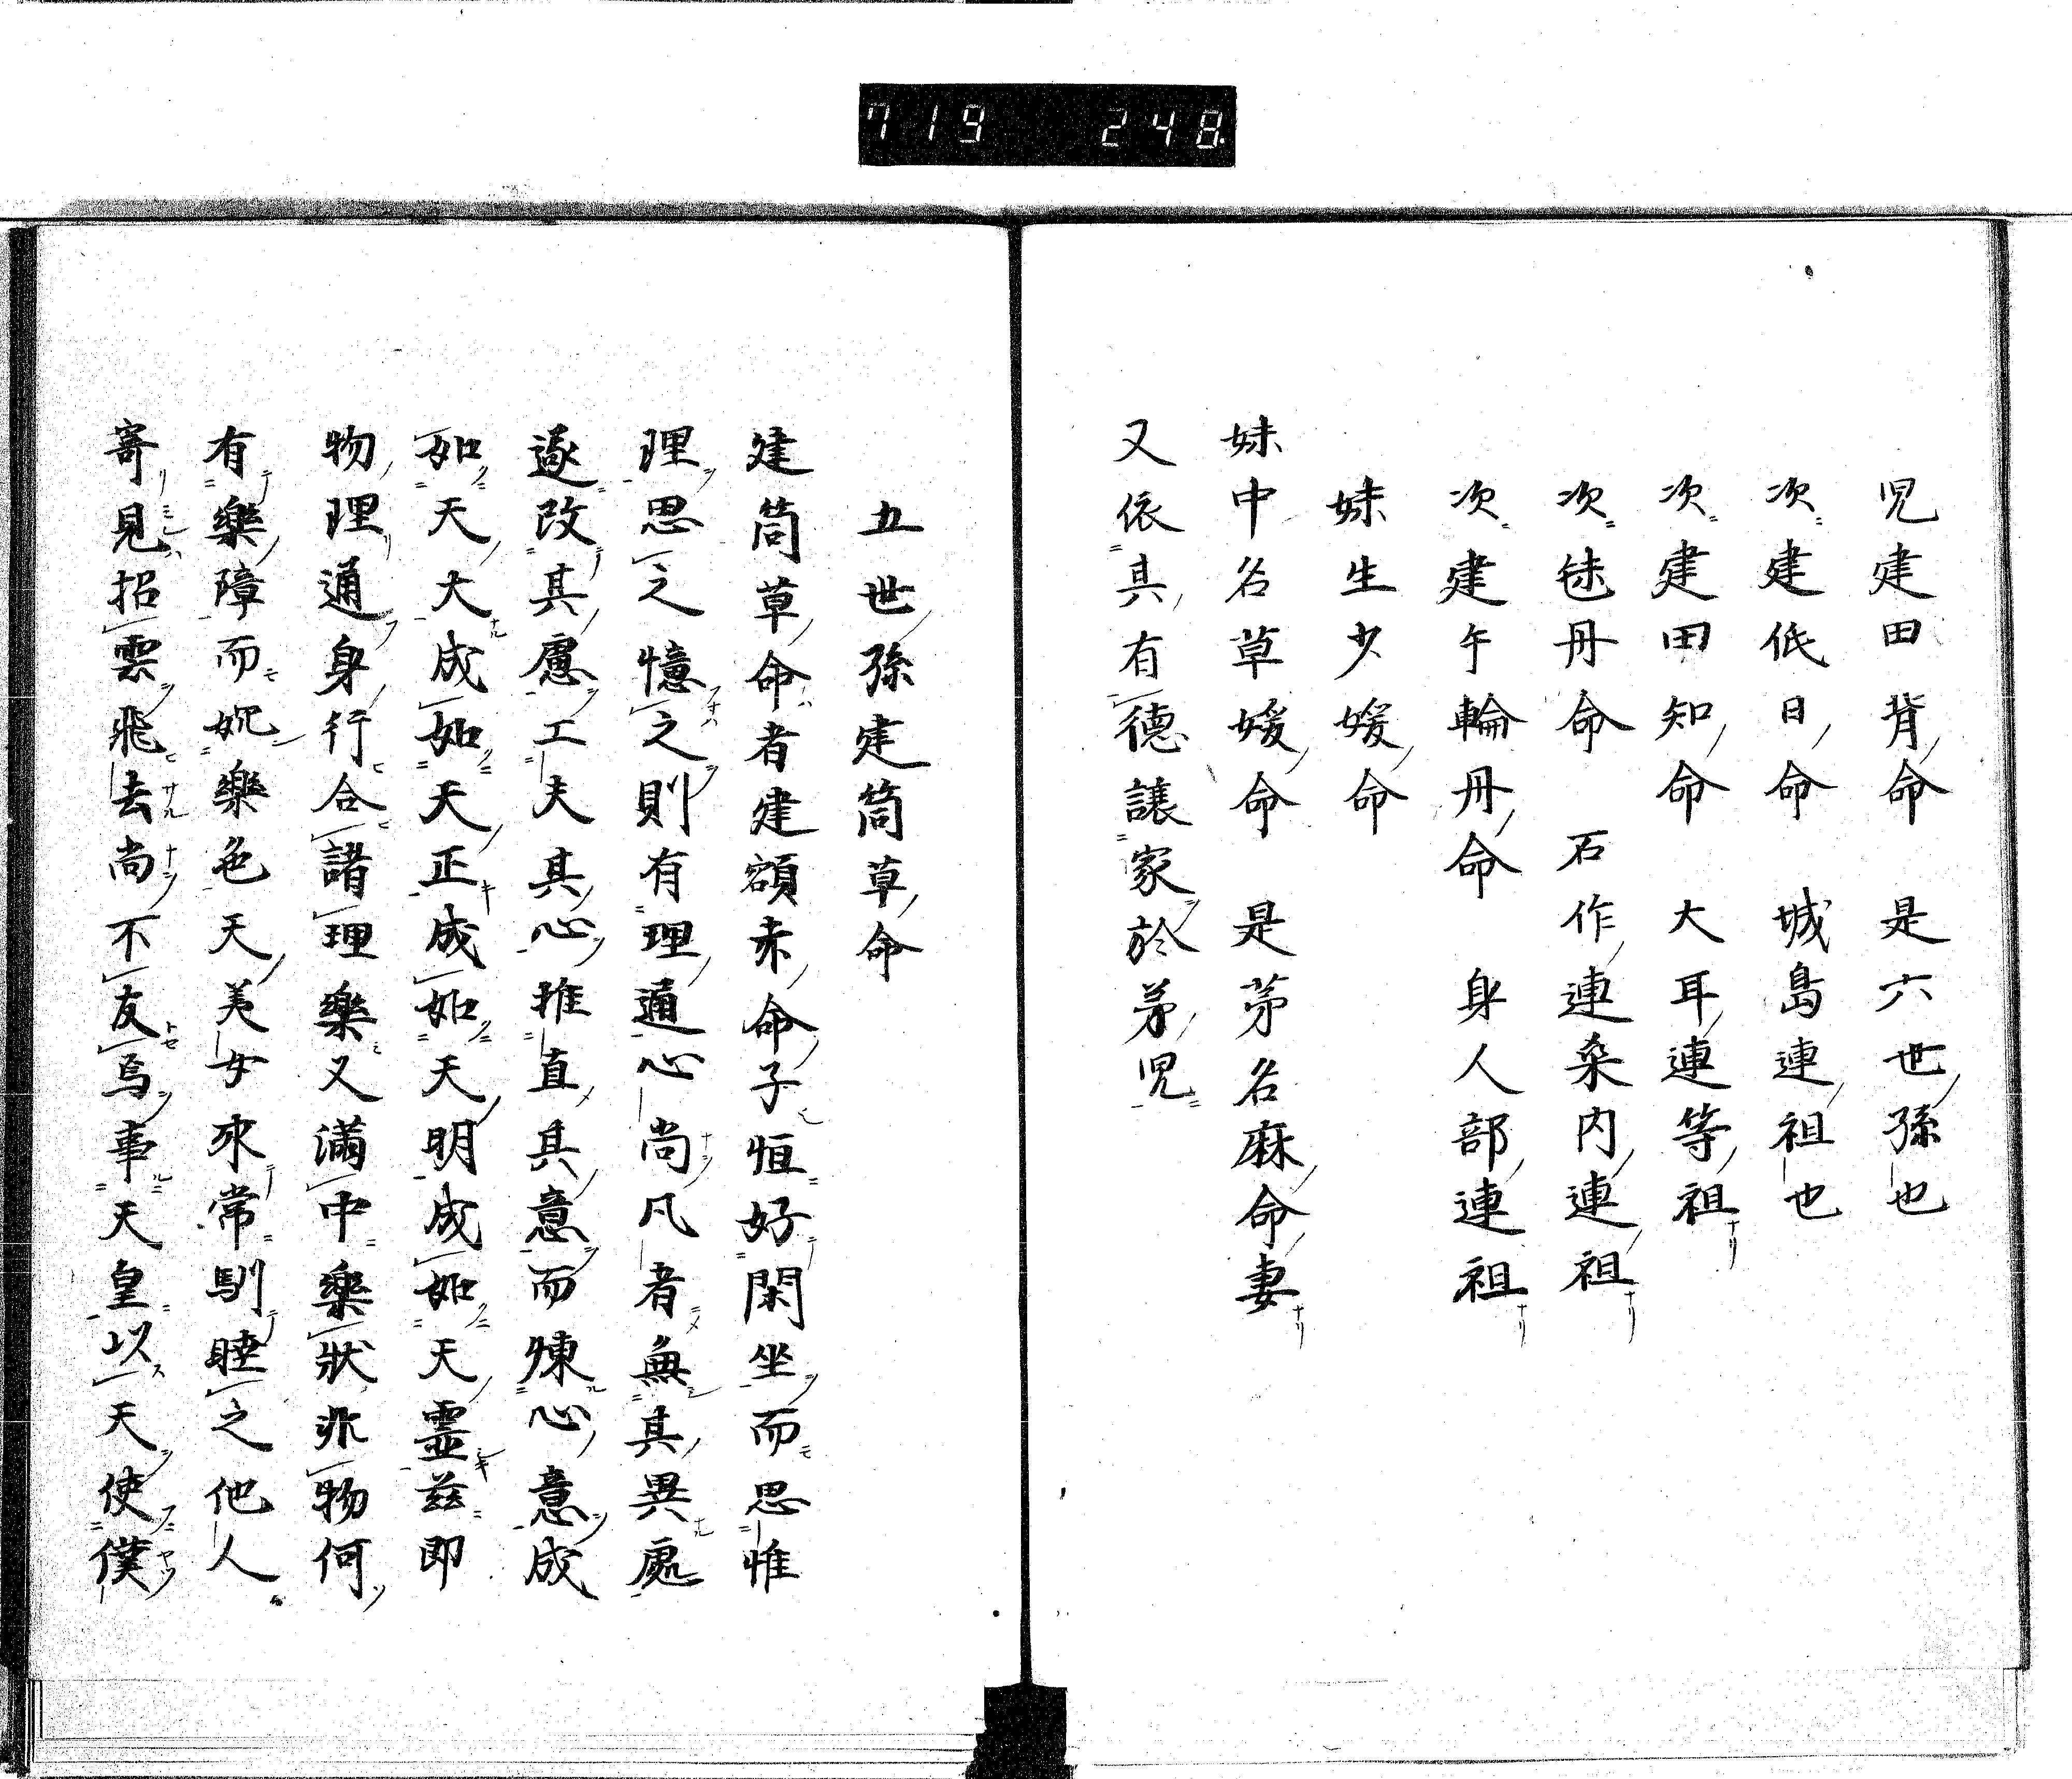 719 248
児建田背命 是六世孫也
次建低日命 城島連祖也
次建田知命 大耳連等祖
次毬丹命 石作連桒内連祖
次建午輪丹命 身人部連祖
妹生少媛命
妹中名草媛命 是茅名麻命妻
又依其有德讓家於弟児
五世孫建筒草命
建筒草命者建額赤命子恒好閑坐而思惟
理思之憶之則有理通心尚凡者無其異處
遂改其慮工夫其心推直其意而煉心意成
如天大成如天正成如天明成如天靈茲即
物理通身行合諸理樂又滿中樂狀非物何
有樂障而妮樂色天美女來常馴睦之他人
寄見招雲飛去尚不友焉事天皇以天使僕